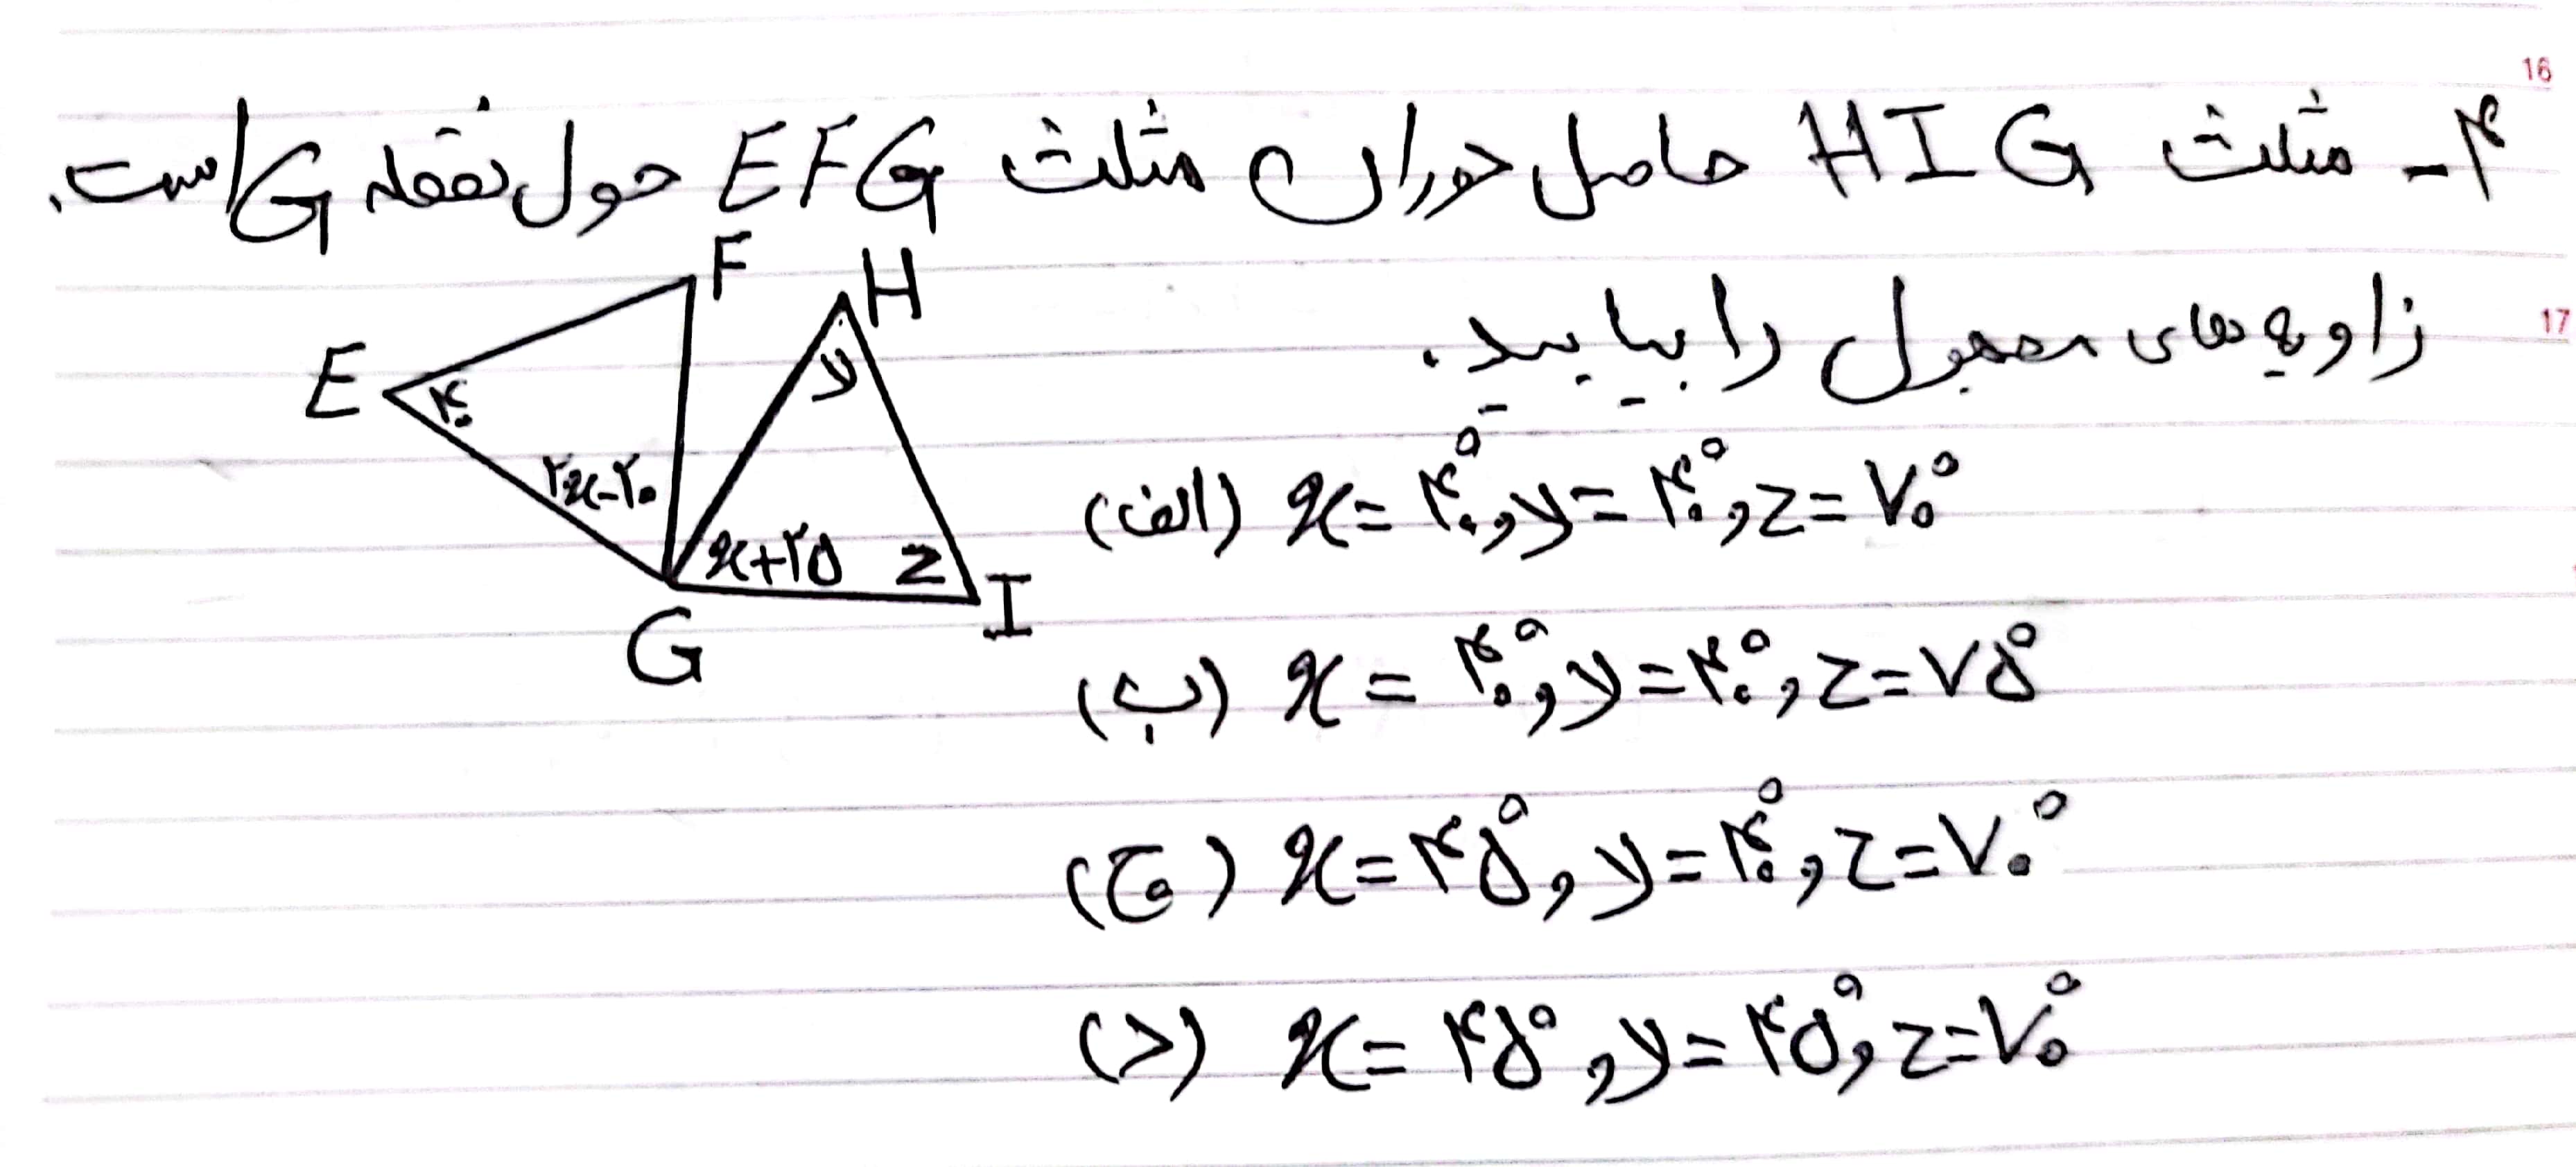 16
۴- مثلث HIG حاصل دوران مثلث EFG حول نقطه G است.
17
زاویه‌های مجهول را بیابید.
F
H
E
۴۰
y
۲x-۲۰
x+۲۵
z
G
I
الف) x=۴۰°, y=۴۰°, z=۷۰°
ب) x=۴۰°, y=۴۰°, z=۷۵°
ج) x=۴۵°, y=۴۰°, z=۷۰°
د) x=۴۵°, y=۴۵°, z=۷۰°